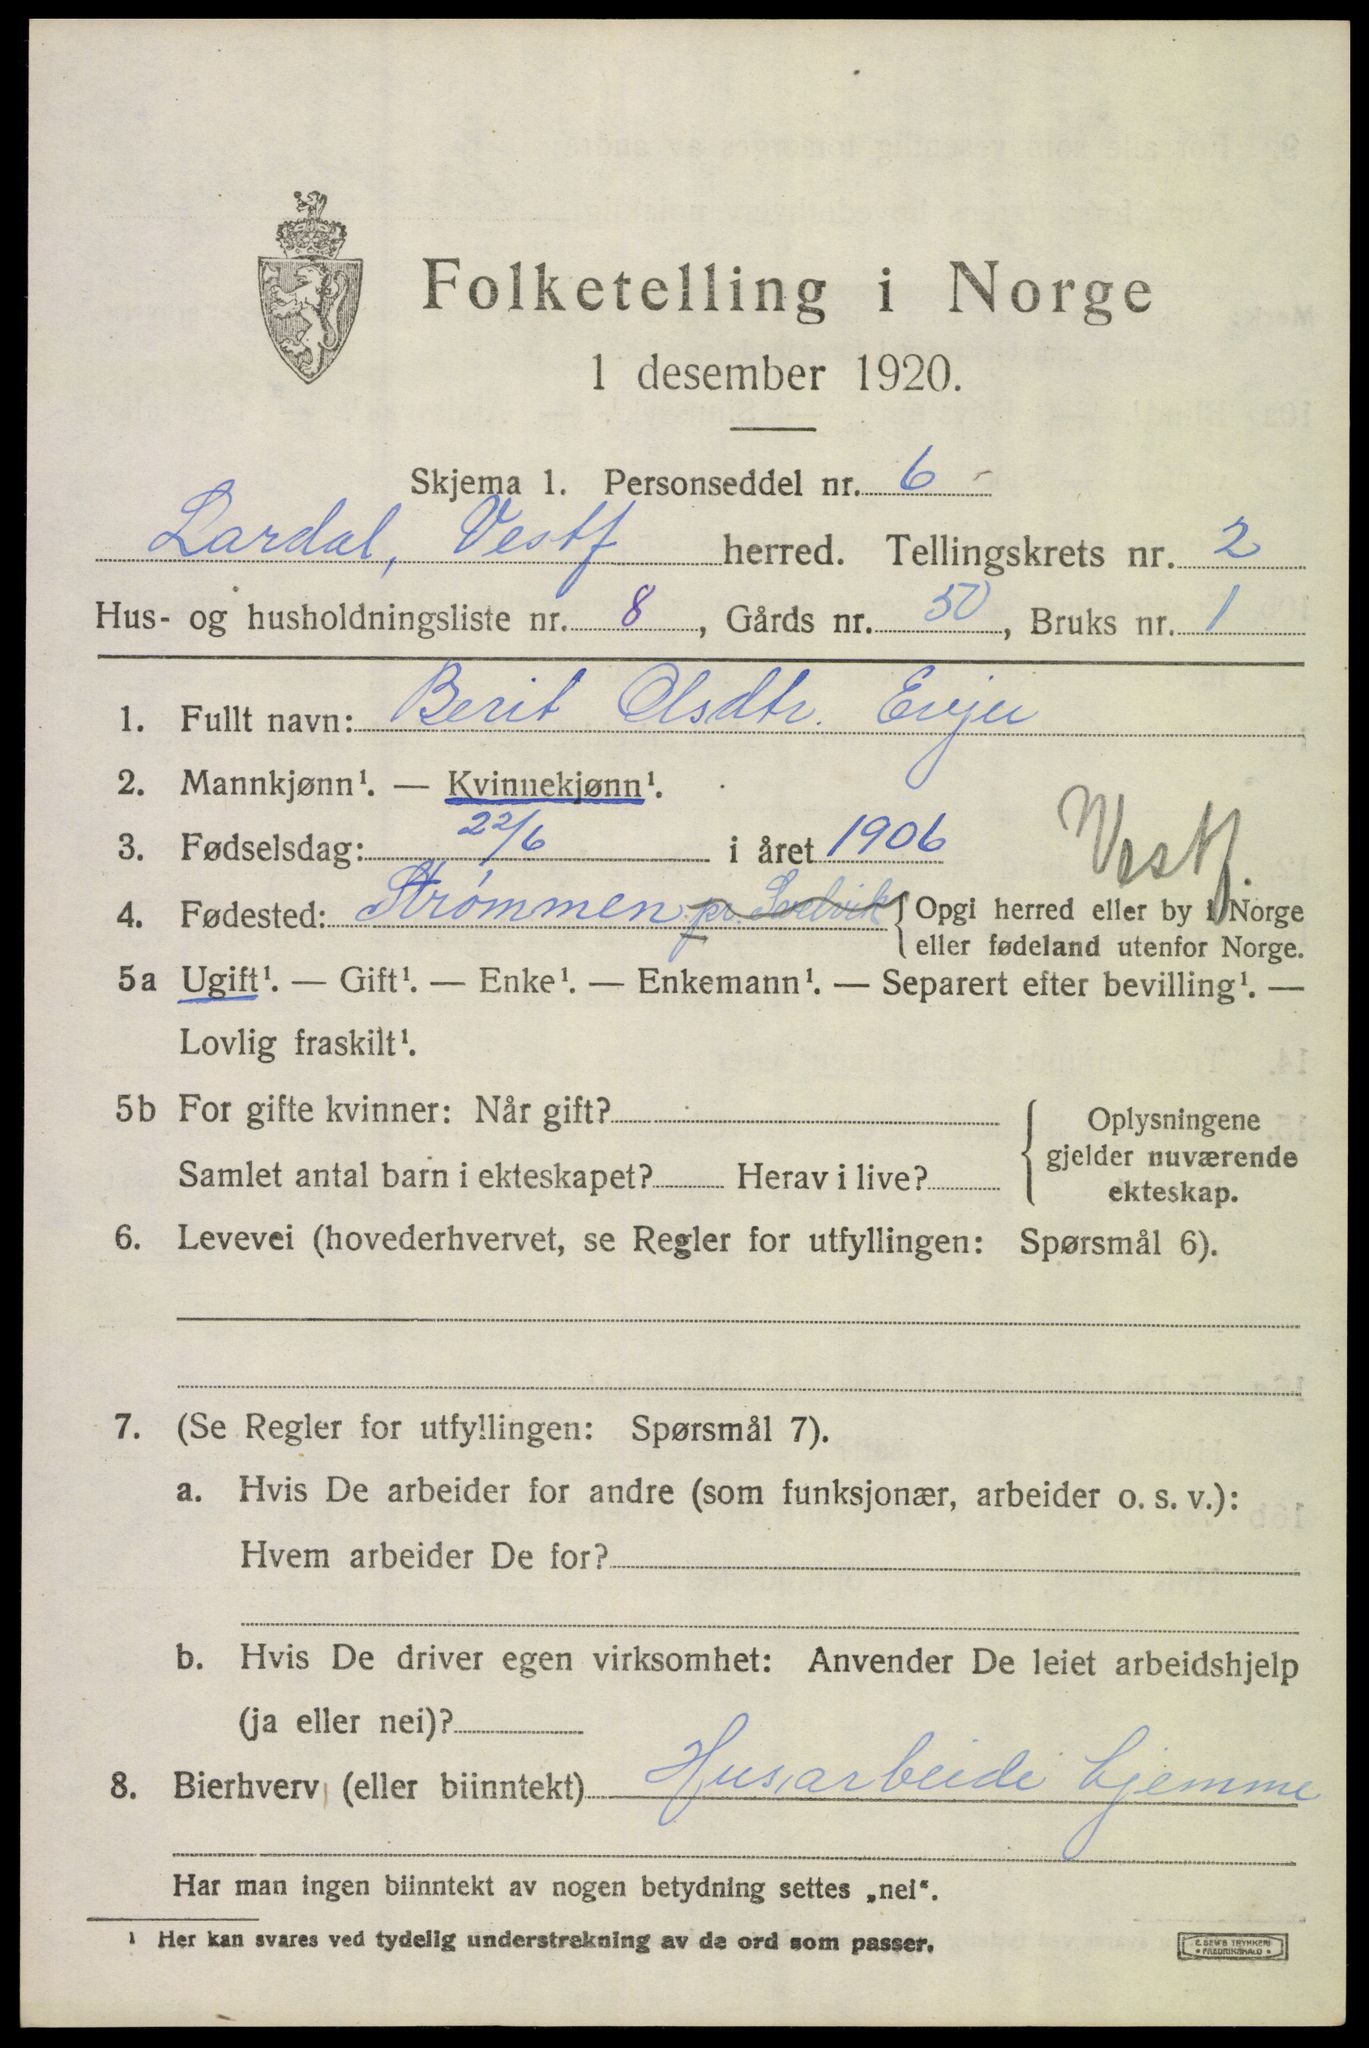 Folketelling i Norge
1 desember 1920.
Skjema 1. Personseddel nr. 6
Lardal, Vestf herred. Tellingskrets nr. 2
Hus- og husholdningsliste nr. 8, Gårds nr. 50, Bruks nr. 1
1. Fullt navn: Berit Olsdtr. Evju
2. Mannkjønn¹. — Kvinnekjønn¹.
3. Fødselsdag: 22/6 i året 1906
Vestf.
4. Fødested: Strømmen pr. Svelvik { Opgi herred eller by i Norge
eller fødeland utenfor Norge.
5a Ugift¹. — Gift¹. — Enke¹. — Enkemann¹. — Separert efter bevilling¹. —
Lovlig fraskilt¹.
5b For gifte kvinner: Når gift?
Samlet antal barn i ekteskapet? Herav i live?
{ Oplysningene
gjelder nuværende
ekteskap.
6. Levevei (hovederhvervet, se Regler for utfyllingen: Spørsmål 6).
7. (Se Regler for utfyllingen: Spørsmål 7).
a. Hvis De arbeider for andre (som funksjonær, arbeider o. s. v.):
Hvem arbeider De for?
b. Hvis De driver egen virksomhet: Anvender De leiet arbeidshjelp
(ja eller nei)?
8. Bierhverv (eller biinntekt) Husarbeide hjemme
Har man ingen biinntekt av nogen betydning settes „nei“.
¹ Her kan svares ved tydelig understrekning av de ord som passer.
E. SEM'S TRYKKERI
• FREDRIKSHALD •